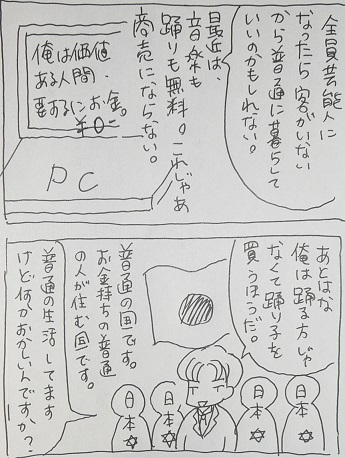 全員芸能人に
なったら客がいない
から普通に暮らして
いいのかもしれない。
最近は、
音楽も
踊りも無料。これじゃあ
商売にならない。
俺は価値
ある人間・
要するにお金。
¥0ー
PC
あとはな
俺は踊る方じゃ
なくて踊り子を
買うほうだ。
普通の国です。
お金持ちの普通
の人が住む国です。
普通の生活してます
けど何かおかしいんですか?
日本
日本
日本
日本